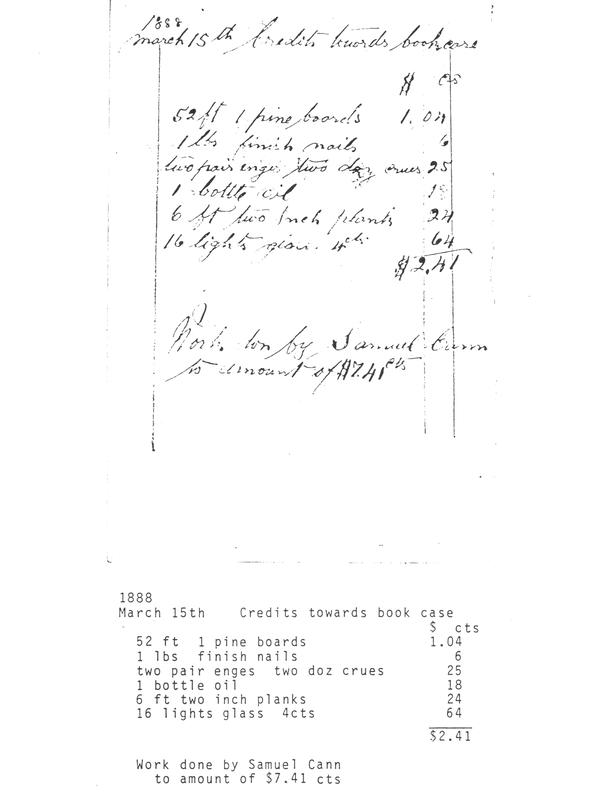 1888
March 15th Credits towards book case
$ cts
52 ft 1 pine boards 1.04
1 lbs finish nails 6
two pair enges two doz crues 25
1 bottle oil 18
6 ft two Inch planks 24
16 lights glass. 4cts 64
$2.41
Work don by Samuel Cann
to amount of $7.41 cts
1888
March 15th Credits towards book case
$ cts
52 ft 1 pine boards 1.04
1 lbs finish nails 6
two pair enges two doz crues 25
1 bottle oil 18
6 ft two inch planks 24
16 lights glass 4cts 64
$2.41
Work done by Samuel Cann
to amount of $7.41 cts